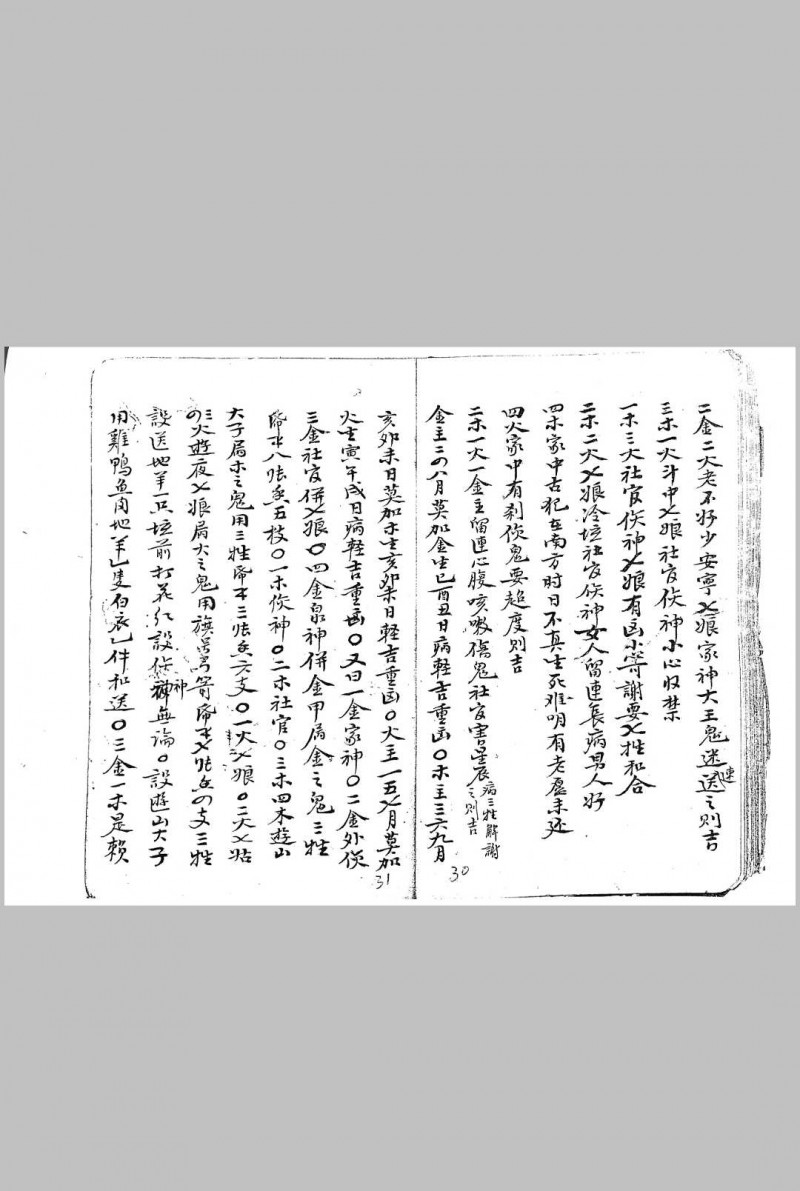 二金二火老不好少安寧七娘家神大王鬼迷送之則吉
連
三木一火斗中七娘社官伤神小心收禁
一木三火社官伤神七娘有凶小寄謝要七牲和合
二木二火七娘冷坛社官伤神女人留連長病男人好
四木家中古犯在南方时日不真生死难明有老愿未还
四火家中有刹伤鬼要超度則吉
二木一火一金主留連心腹咳嗽伤鬼社官害辰
病三牲解謝
之則吉
金主二四八月莫加金生巳酉丑日病軽吉重凶〇木主三六九月
30
亥卯未日莫加木生亥卯未日軽吉重凶〇火主一五七月莫加
火生寅午戌日病軽吉重凶〇又曰一金家神〇二金外伤
三金社官併七娘〇四金泉神併金甲属金之鬼三牲
八张香五枝〇一木伤神〇二木社官〇三木四木遊山
大子局木之鬼用三牲三张香六支〇一火七娘〇二火七姑
三火遊夜七娘局火之鬼用旗七张香四支三牲
設送地羊一只坛前打花红設伤神無論〇設遊山大子
神
用雞鴨魚肉地羊一隻白衣一件和送〇三金一木是赖
31